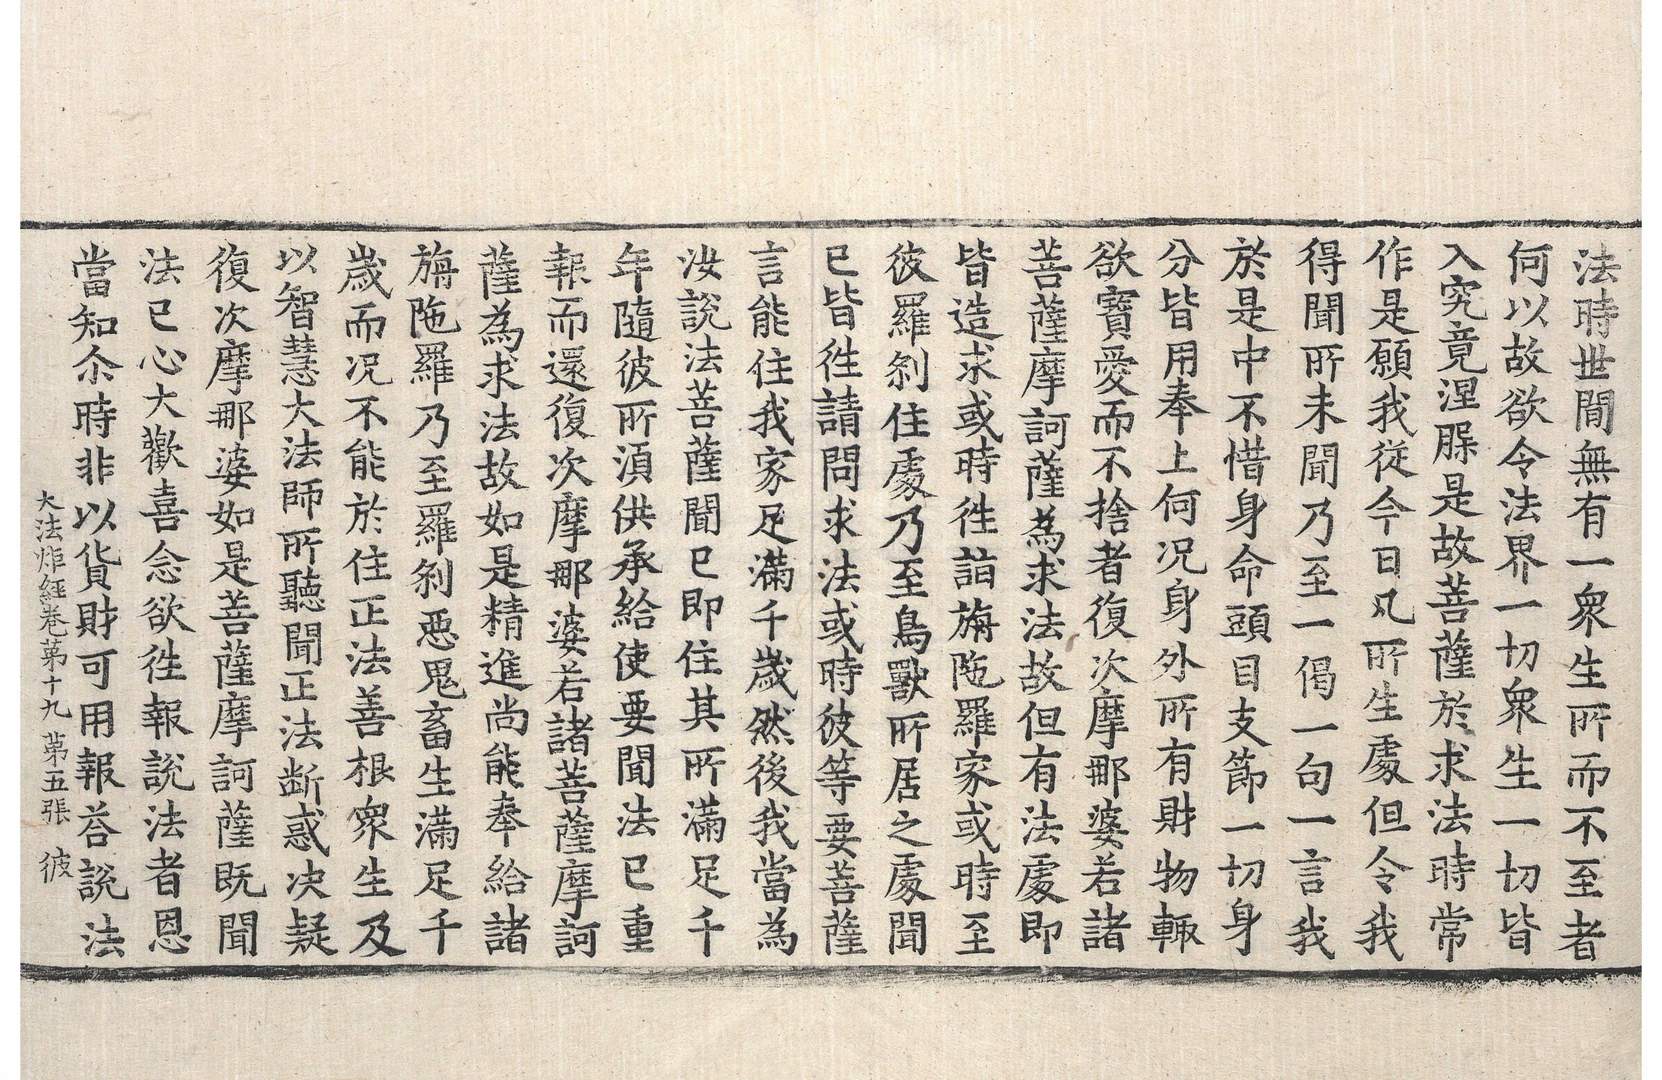 法時世間無有一衆生所而不至者
何以故欲令法界一切衆生一切皆
入究竟涅脲是故菩薩於求法時常
作是願我従今日凡所生處但令我
得聞所未聞乃至一偈一句一言我
於是中不惜身命頭目支節一切身
分皆用奉上何况身外所有財物輙
欲寶愛而不捨者復次摩那婆若諸
菩薩摩訶薩為求法故但有法處即
皆造求或時徃詣旃陁羅家或時至
彼羅刹住處乃至鳥獸所居之處聞
已皆徃請問求法或時彼等要菩薩
言能住我家足滿千歲然後我當為
汝說法菩薩聞已即住其所滿足千
年隨彼所湏供承給使要聞法已重
報而還復次摩那婆若諸菩薩摩訶
薩為求法故如是精進尚能奉給諸
旃陁羅乃至羅刹惡鬼畜生滿足千
歲而况不能於住正法善根衆生及
以智慧大法師所聽聞正法断惑决疑
復次摩那婆如是菩薩摩訶薩既聞
法已心大歡喜念欲徃報說法者恩
當知尒時非以貨財可用報荅說法
大法炬經卷第十九 第五張 彼